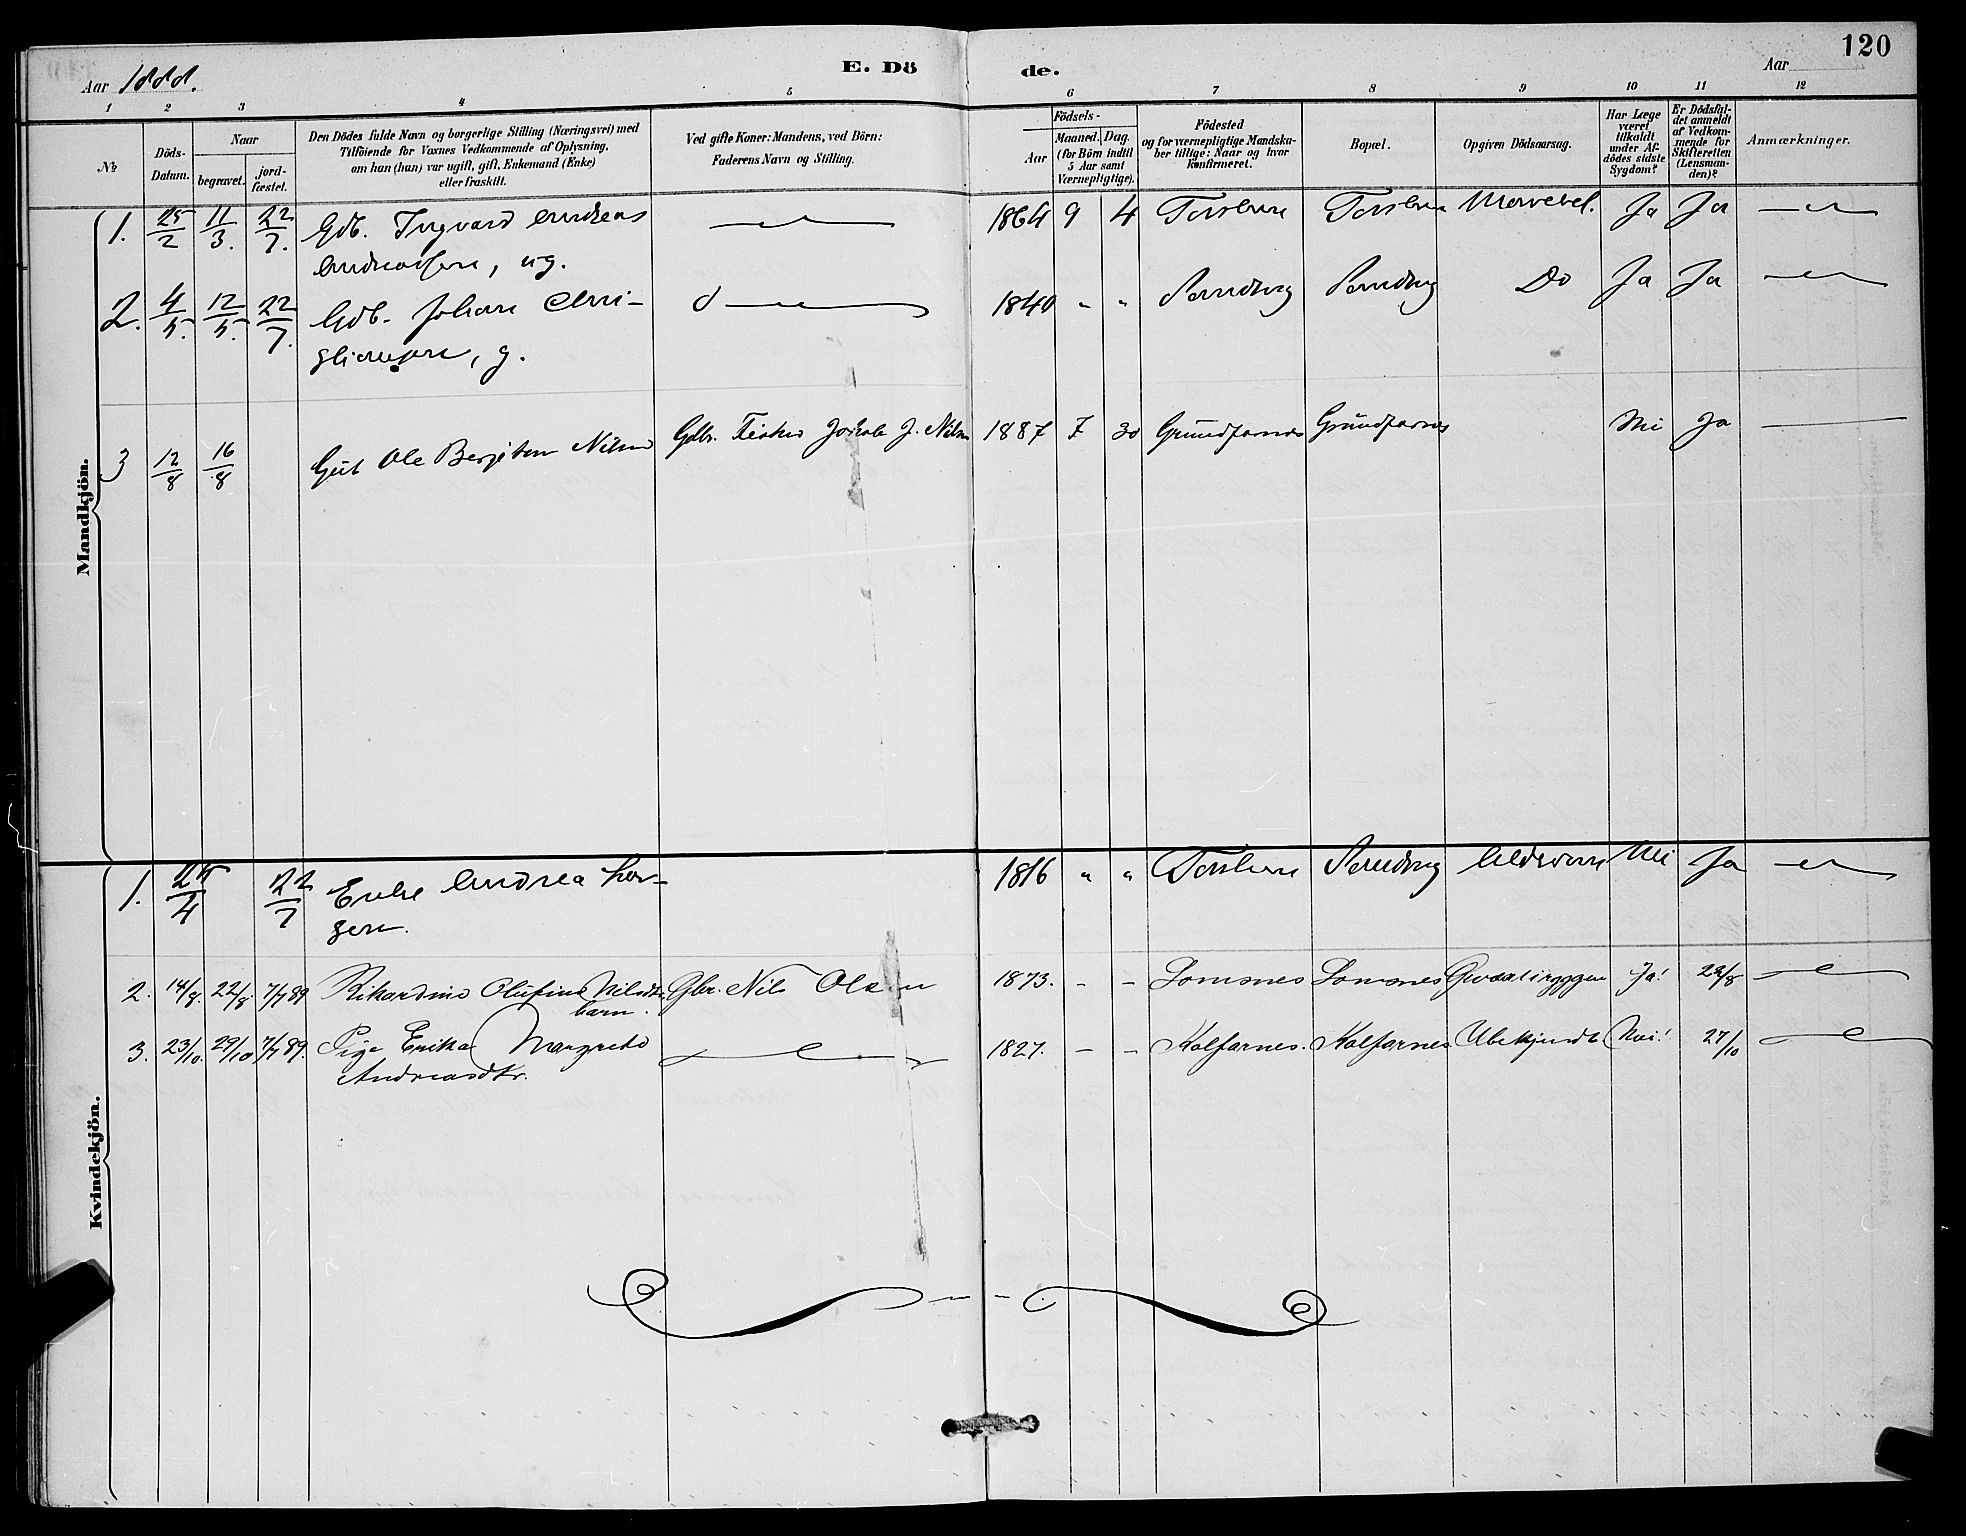 120
Aar 1888.
E. Dö
de.
Aar
1 2 3 4 5 6 7 8 9 10 11 12
No
Döds-
Datum.
Naar
begravet.
jord-
fæstet.
Den Dödes fulde Navn og borgerlige Stilling (Næringsvei) med
Tilföiende for Voxnes Vedkommende af Oplysning,
om han (hun) var ugift, gift, Enkemand (Enke)
eller fraskilt.
Ved gifte Koner: Mandens, ved Börn:
Faderens Navn og Stilling.
Födsels-
Aar
Maaned.
Dag.
(for Børn indtil
5 Aar samt
Værnepligtige).
Födested
og for værnepligtige Mandska-
ber tillige: Naar og hvor
konfirmeret.
Bopæl.
Opgiven Dödsaarsag.
Har Læge
været
tilkaldt
under Af-
dödes sidste
Sygdom?
Er Dödsfal-
det anmeldt
af Vedkom-
mende for
Skifteretten
(Lensman-
den)?
Anmærkninger.
Mandkjön.
1. 25/2 11/3. 22/7. Gdb. Ingvard Andreas 1864 9 4 Ja Ja
Andreassen, ug.
2. 4/5. 12/5. 22/7. Gdb. Johan Chri- 1840 " " Do Ja Ja
stiansen, g.
3 12/8 16/8 Gut Ole Nilsen Gdbr. Fisker Jakob J. Nilsen 1887 7 30 Grundfarnes Grundfarnes Nei Ja
Kvindekjön.
1. 25/4 22/7 Enke Andrea 1816 " " Alderdom Nei Ja
2. 14/8. 22/8. 7/7 89 Rikardine Olufine Nilsdtr. Gbr. Nils Olsen 1873. - - Lomsnes Lomsnes Ja! 22/8
barn.
3. 23/10. 29/10 7/7 89. Pige Erika Margrete 1827. - - Kalfarnes. Kalfarnes. Ubekjendt Nei! 27/10
Andreasdtr.